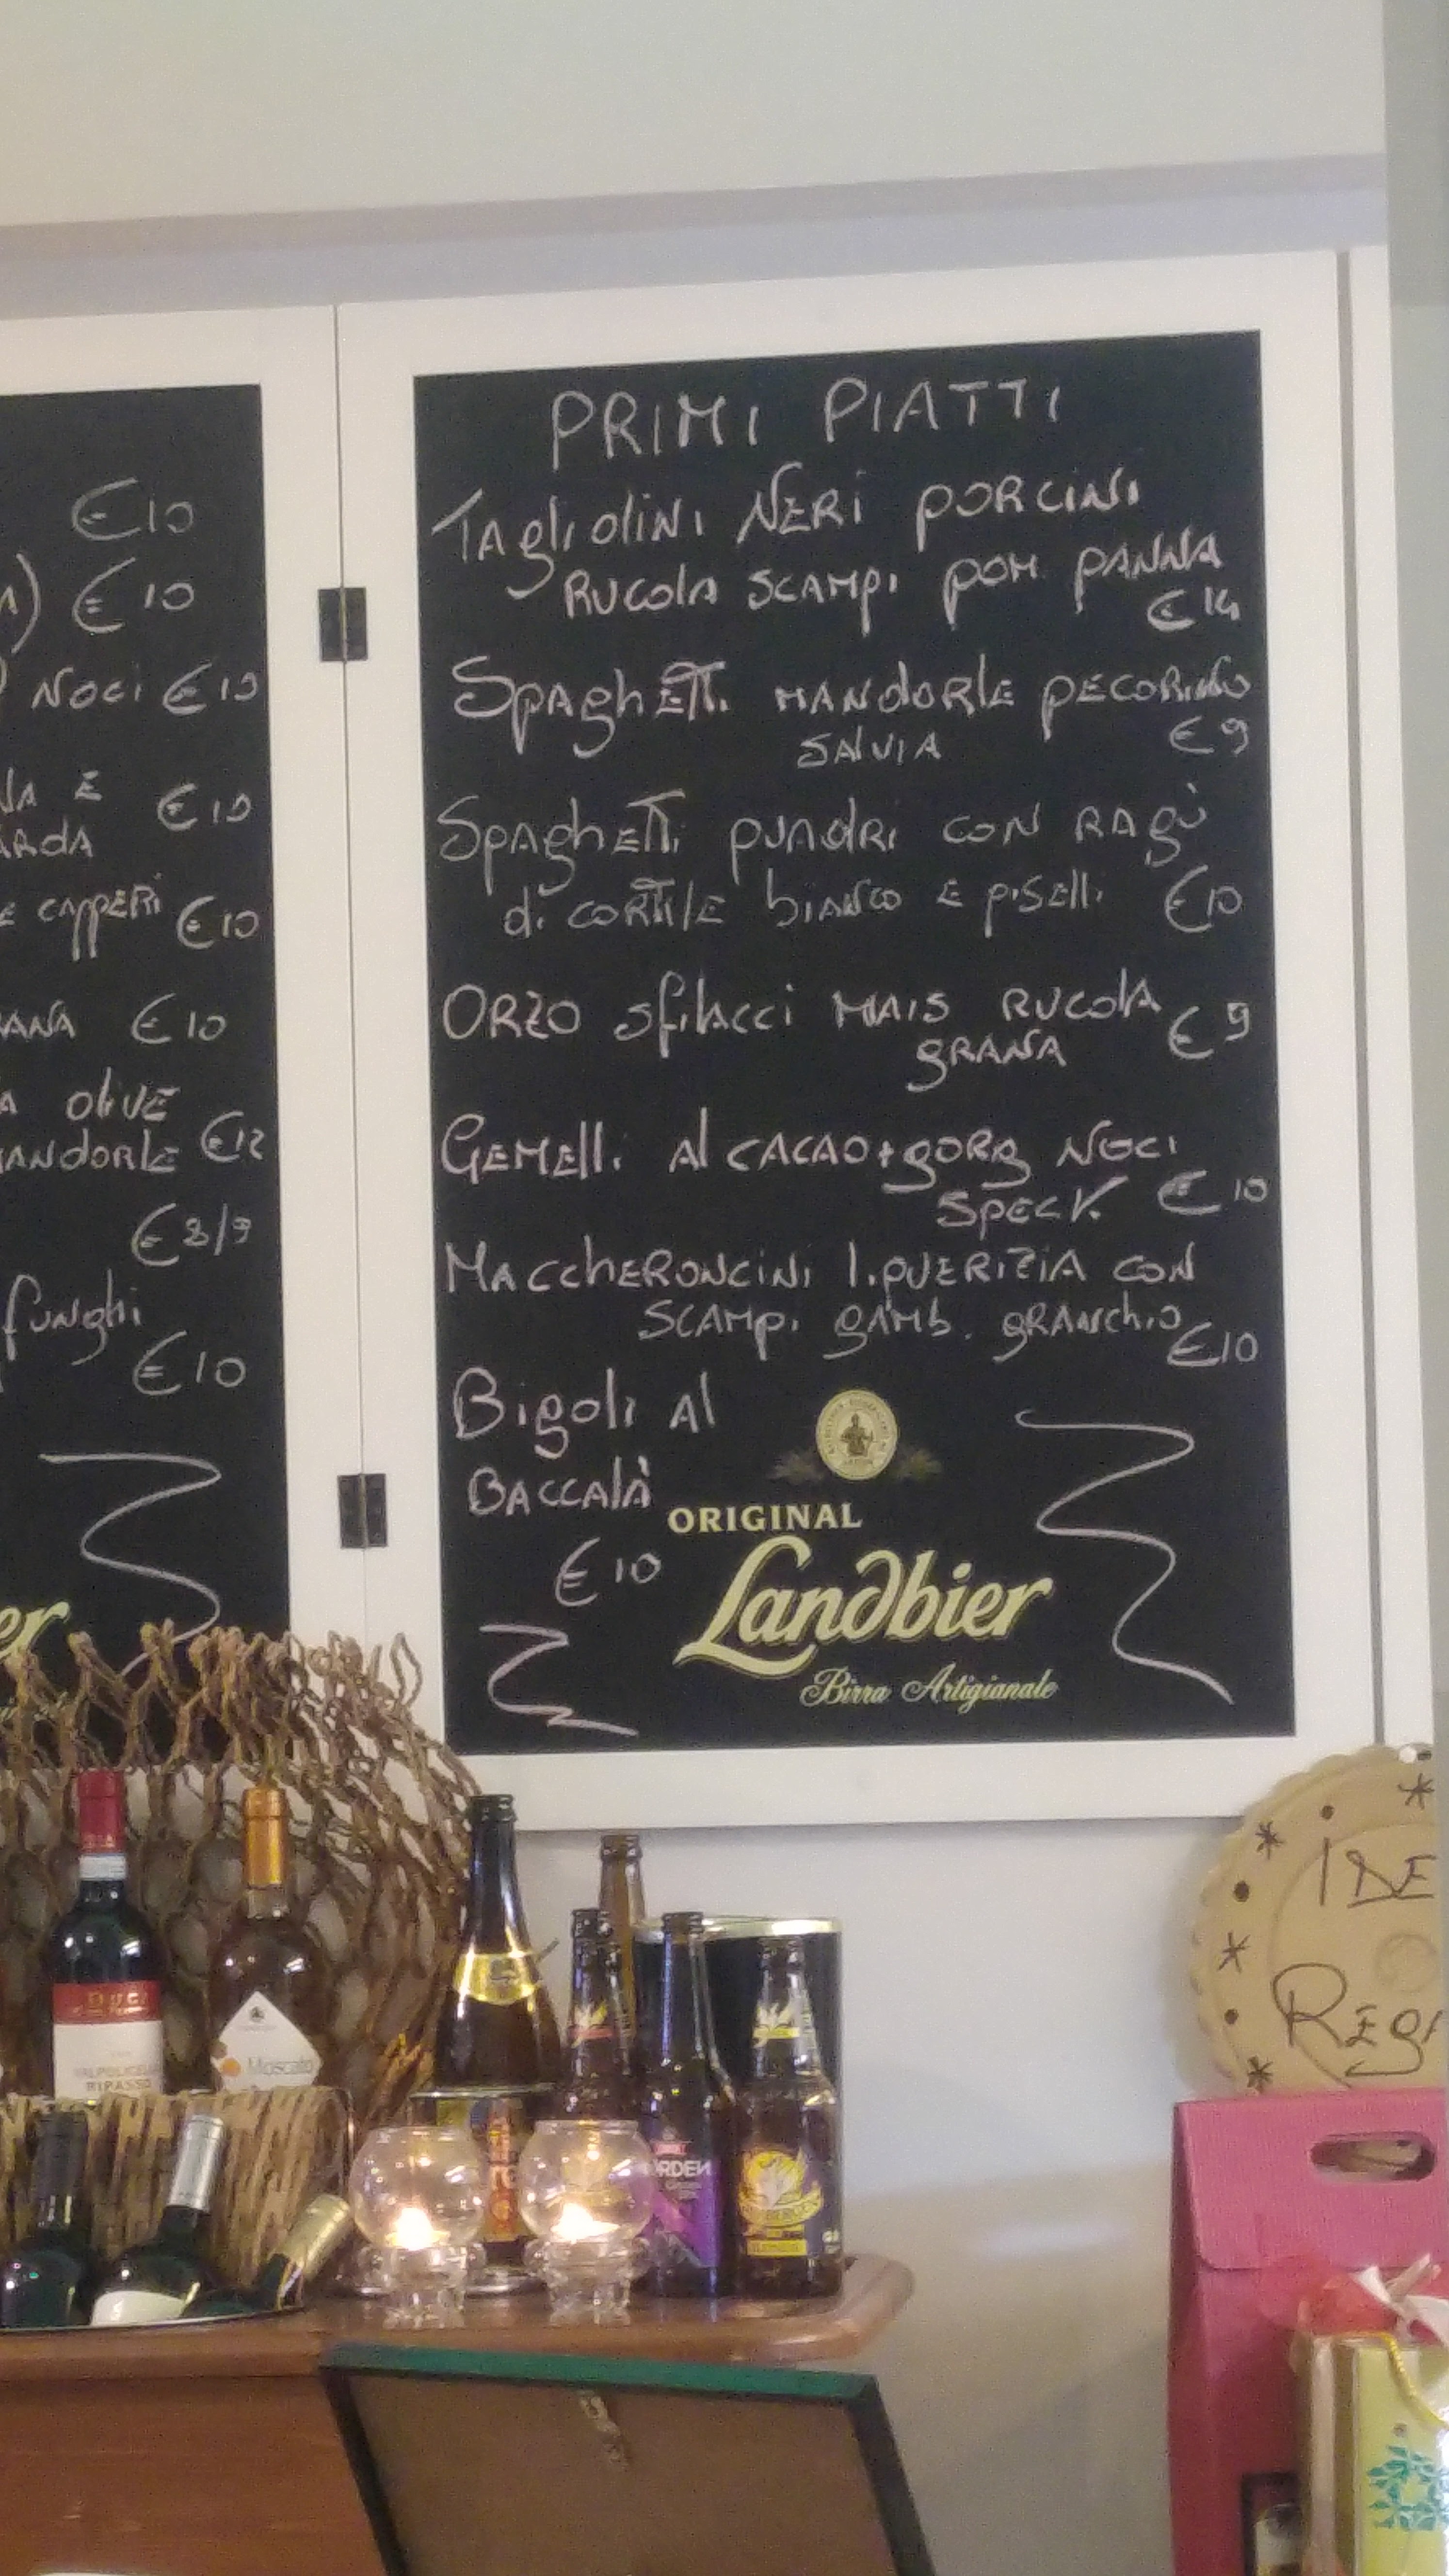 €10
€10
NOCI €10
E €10
ARDA
E CAPPERI €10
€10
OLIVE
€12
€8/9
FUNGHI
€10
PRIMI PIATTI
TAGLIOLINI NERI PORCINI
RUCOLA SCAMPI POM PANNA
€14
SPAGHETTI MANDORLE PECORINO
SALVIA €9
SPAGHETTI QUADRI CON RAGÙ
DI CORTILE BIANCO E PISELLI €10
ORZO SFILACCI MAIS RUCOLA
GRANA €9
GEMELLI AL CACAO + GORG NOCI
SPECK €10
MACCHERONCINI LIQUERIZIA CON
SCAMPI GAMB. GRANCHIO
€10
BIGOLI AL
BACCALÀ
€10
ORIGINAL
Landbier
Birra Artigianale
er
IDE
REGA
Moscato
RIPASSO